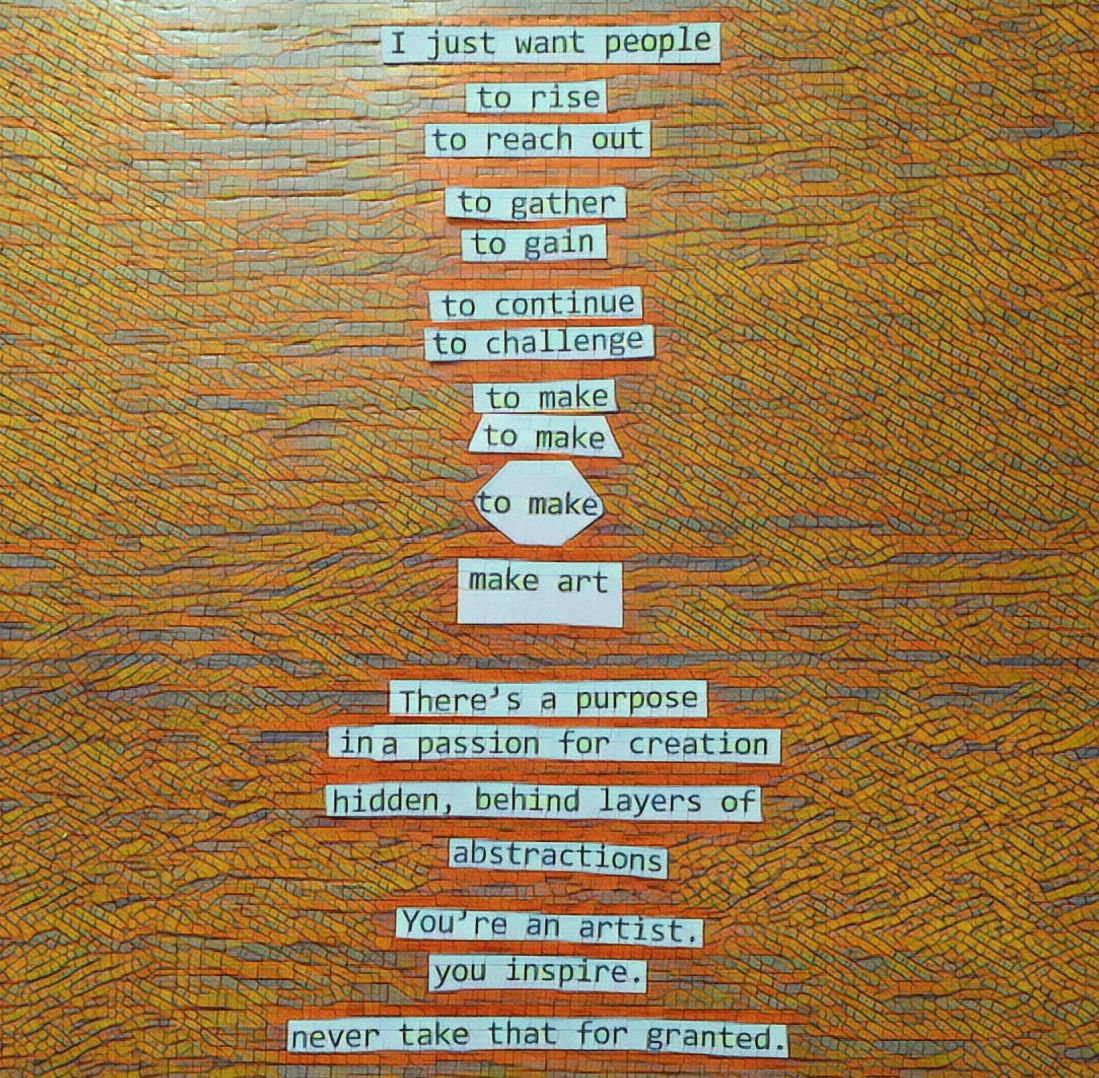 I just want people
to rise
to reach out
to gather
to gain
to continue
to challenge
to make
to make
to make
make art
There's a purpose
in a passion for creation
hidden, behind layers of
abstractions
You're an artist.
you inspire.
never take that for granted.